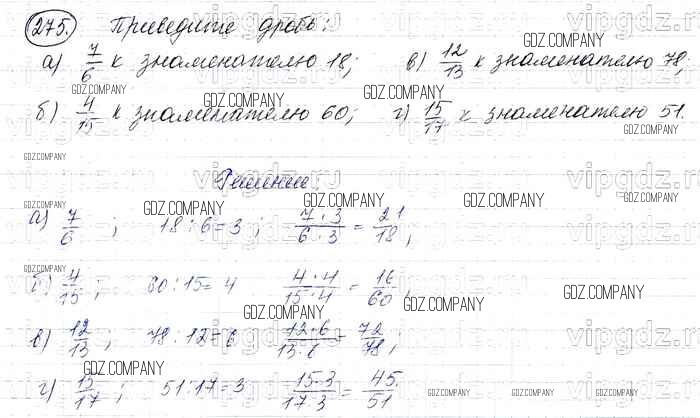 275. Приведите дробь:
а) 7/6 к знаменателю 18; в) 12/13 к знаменателю 78;
б) 4/15 к знаменателю 60; г) 15/17 к знаменателю 51.
Решение:
а) 7/6 ; 18:6=3 ; 7·3/6·3 = 21/18;
б) 4/15 ; 60:15=4 4·4/15·4 = 16/60;
в) 12/13 ; 78:12=6 12·6/13·6 = 72/78;
г) 15/17 ; 51:17=3 15·3/17·3 = 45/51
GDZ.COMPANY
vipgdz.ru